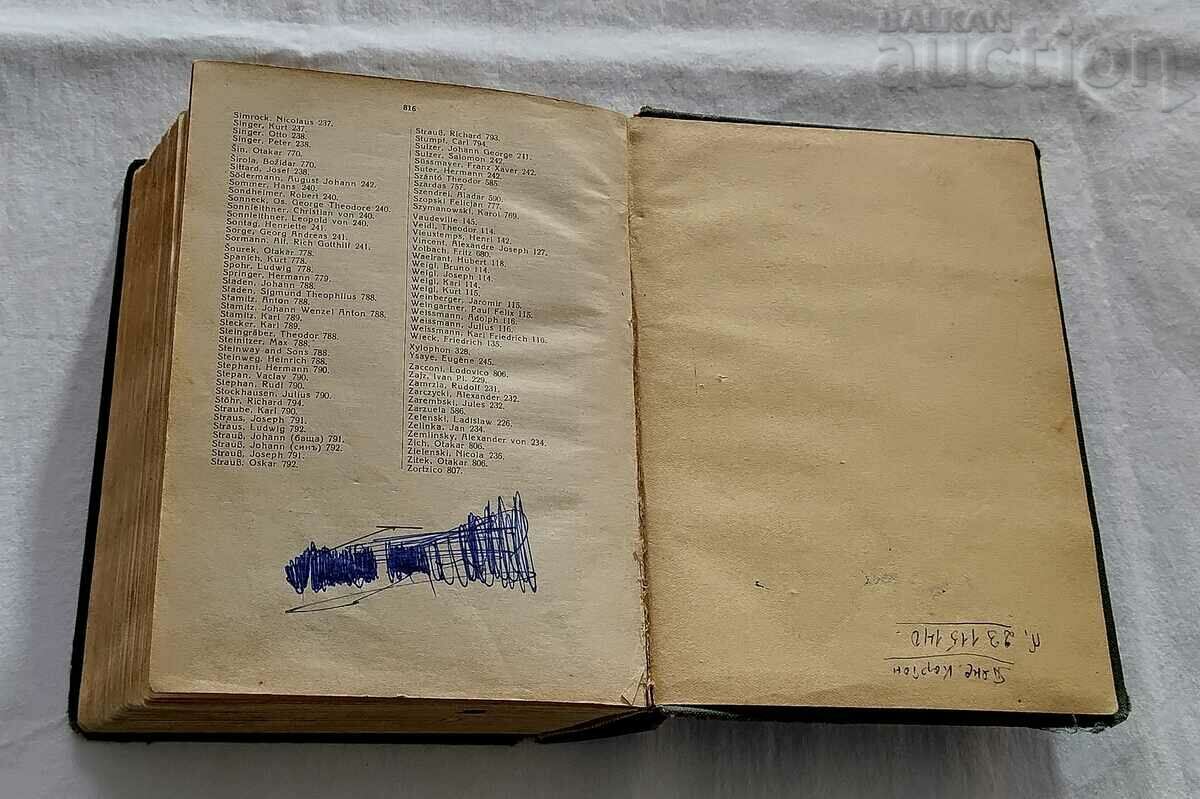 BALKAN
auction
816
Simrock, Nicolaus 237.
Singer, Kurt 237.
Singer, Otto 238.
Singer, Peter 238.
Šin, Otakar 770.
Širola, Božidar 770.
Sittard, Josef 238.
Södermann, August Johann 242.
Sommer, Hans 240.
Sondheimer, Robert 240.
Sonneck, Os. George Theodore 240.
Sonnleithner, Christian von 240.
Sonnleithner, Leopold von 240.
Sontag, Henriette 241.
Sorge, Georg Andreas 241.
Sormann, Alf. Rich Gotthilf 241.
Sourek, Otakar 778.
Spanich, Kurt 778.
Spohr, Ludwig 778.
Springer, Hermann 779.
Staden, Johann 788.
Staden, Sigmund Theophilus 788.
Stamitz, Anton 788.
Stamitz, Johann Wenzel Anton 788.
Stamitz, Karl 789.
Stecker, Karl 789.
Steingräber, Theodor 788.
Steinitzer, Max 788.
Steinway and Sons 788.
Steinweg, Heinrich 788.
Stephani, Hermann 790.
Stepan, Vaclav 790.
Stephan, Rudi 790.
Stockhausen, Julius 790.
Stöhr, Richard 794.
Straube, Karl 790.
Straus, Joseph 791.
Straus, Ludwig 792.
Strauß, Johann (баща) 791.
Strauß, Johann (синъ) 792.
Strauß, Joseph 791.
Strauß, Oskar 792.
Strauß, Richard 793.
Stumpf, Carl 794.
Sulzer, Johann George 241.
Sulzer, Salomon 242.
Süssmayer, Franz Xaver 242.
Suter, Hermann 242.
Szántó Theodor 585.
Szárdas 757.
Szendrei, Aladar 590.
Szopski Felicjan 777.
Szymanowski, Karol 769.
Vaudeville 145.
Veidl, Theodor 114.
Vieuxtemps, Henri 142.
Vincent, Alexandre Joseph 127.
Volbach, Fritz 680.
Waelrant, Hubert 118.
Weigl, Bruno 114.
Weigl, Joseph 114.
Weigl, Karl 114.
Weigl, Kurt 115.
Weinberger, Jaromir 115.
Weingartner, Paul Felix 115.
Weissmann, Adolph 116.
Weissmann, Julius 116.
Weissmann, Karl Friedrich 116.
Wieck, Friedrich 135.
Xylophon 328.
Ysaye, Eugène 245.
Zacconi, Lodovico 806.
Zajz, Ivan Pl. 229.
Zamrzla, Rudolf 231.
Zarczycki, Alexander 232.
Zarembski, Jules 232.
Zarzuela 586.
Zelenski, Ladislaw 226.
Zelinka, Jan 234.
Zemlinsky, Alexander von 234.
Zich, Otakar 806.
Zielenski, Nicola 236.
Zitek, Otakar 806.
Zortzico 807.
23 115 140